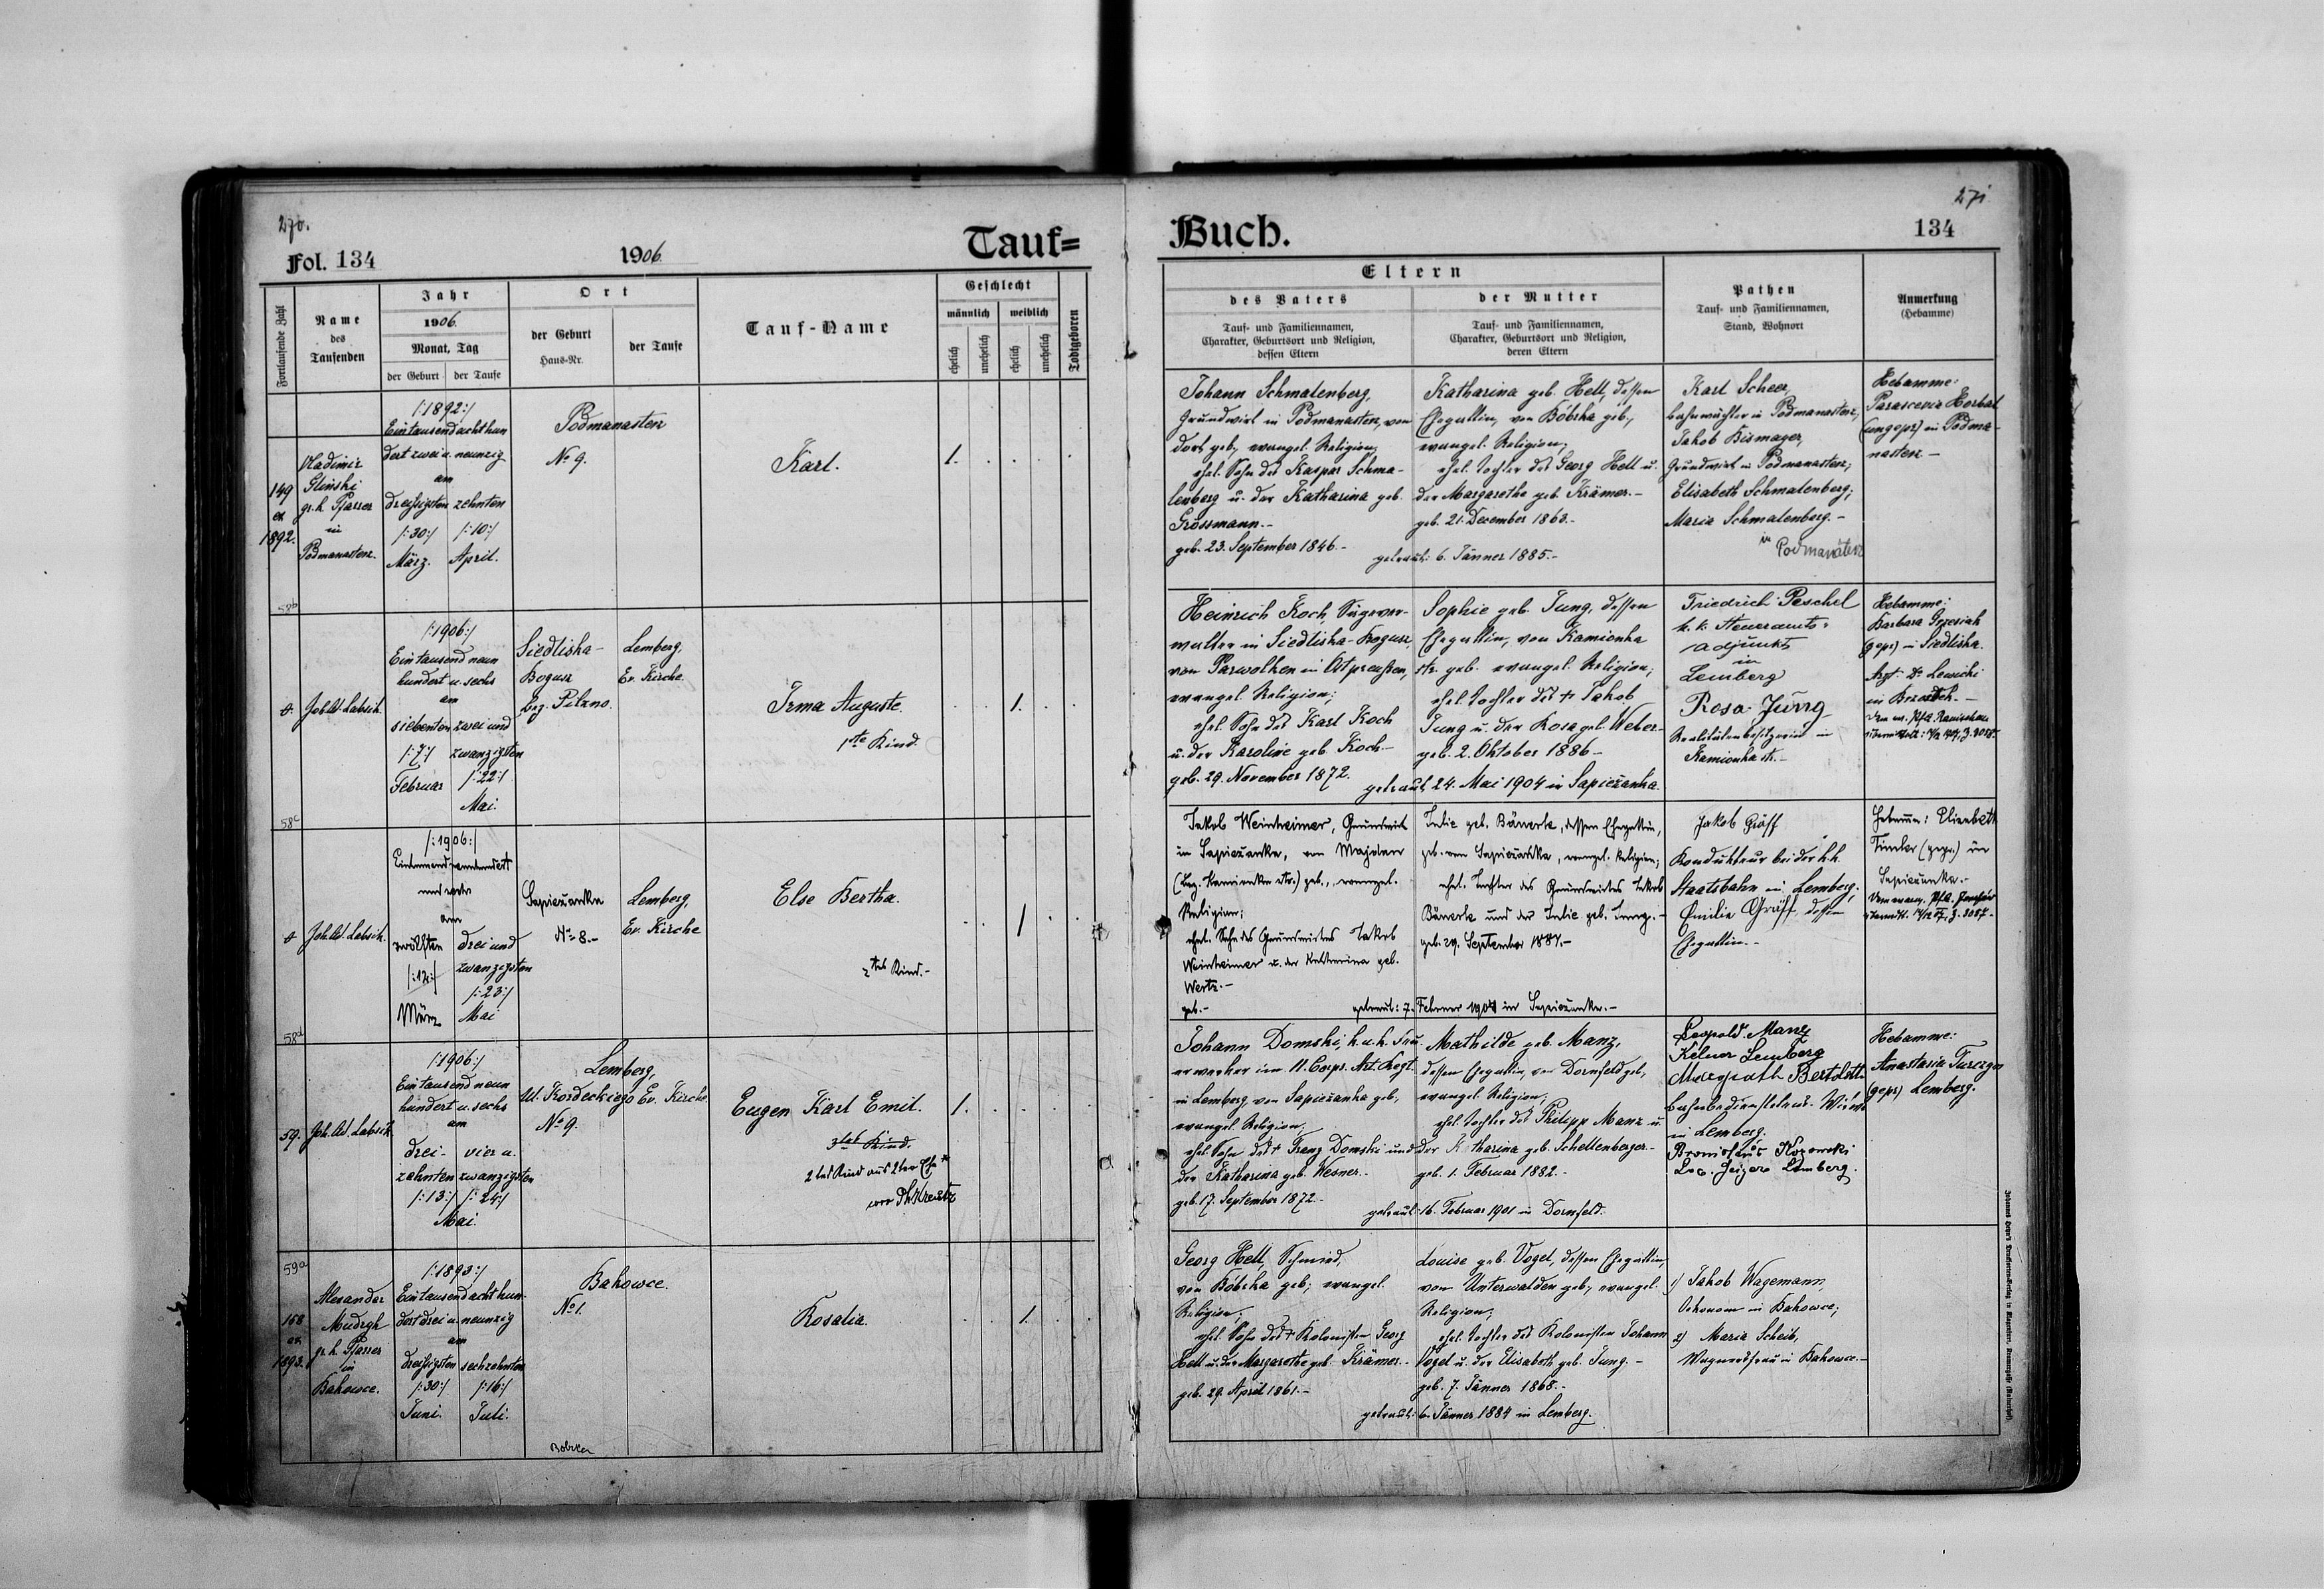 270.
Fol. 134
1906.
Tauf=
Fortlaufende Zahl
Name
des
Taufenden
Jahr
1906.
Monat, Tag
der Geburt
der Taufe
Ort
der Geburt
Haus-Nr.
der Taufe
Tauf-Name
Geschlecht
männlich
weiblich
ehelich
unehelich
ehelich
unehelich
Todtgeboren
149
ex
1892.
Vladimir
Slinski
gr. k. Pfarrer
in
Podmanasterz.
/:1892:/
Eintausendachthun
dert zwei u. neunzig
am
dreißigsten zehnten
/:30:/ /:10:/
März. April.
Podmanasterz
No 9.
Karl.
1.
58b
Joh. Ad. Labsik.
/:1906:/
Eintausend neun
hundert u. sechs
am
siebenten zwei und
/:7:/ zwanzigsten
Februar /:22:/
Mai.
Siedliska-
Bogusz
bez. Pilzno.
Lemberg,
Ev. Kirche.
Irma Auguste.
1tes Kind.
1.
58c
Joh. Ad. Labsik.
/:1906:/
Eintausendneunhundert
und sechs
am
zwölften drei und
/:12:/ zwanzigsten
/:23:/
März Mai
Sapieżanka
No 8.-
Lemberg,
Ev. Kirche
Else Bertha.
2tes Kind.-
1
58d
59.
Joh. Ad. Labsik.
/:1906:/
Eintausend neun
hundert u. sechs
am
drei- vier u.
zehnten zwanzigsten
/:13:/ /:24:/
Mai.
Lemberg,
Ul. Kordeckiego Ev. Kirche.
No 9.
Eugen Karl Emil.
3tes Kind.
2tes Kind aus 2ter Ehe
1.
59a
168
ex
1893.
Alexander
Mudryk
gr. k. Pfarrer
in
Bakowce.
/:1893:/
Eintausendachthun-
dert drei u. neunzig
am
dreißigsten sechzehnten
/:30:/ /:16:/
Juni. Juli.
Bakowce.
No 1.
Rosalia.
1.
Bobrka
271
Buch.
134
Eltern
des Vaters
Tauf- und Familiennamen,
Charakter, Geburtsort und Religion,
dessen Eltern
der Mutter
Tauf- und Familiennamen,
Charakter, Geburtsort und Religion,
deren Eltern
Pathen
Tauf- und Familiennamen,
Stand, Wohnort
Anmerkung
(Hebamme)
Johann Schmalenberg,
Grundwirt in Podmanasterz, von
dort geb., evangel. Religion;
ehel. Sohn des Kaspar Schma-
lenberg u. der Katharina geb.
Grossmann.-
geb. 23. September 1846.-
Katharina geb. Hell, dessen
Ehegattin, von Bóbrka geb.,
evangel. Religion;
ehel. Tochter des Georg Hell u.
der Margarethe geb. Krämer.-
geb. 21. December 1863.-
getraut: 6. Jänner 1885.-
Karl Scheer,
Bahnwächter in Podmanasterz,
Jakob Bismayer,
Grundwirt in Podmanasterz;
Elisabeth Schmalenberg;
Maria Schmalenberg.-
in Podmanasterz
Hebamme:
Parascevia Horbal
(ungepr.) in Podma-
nasterz.-
Heinrich Koch, Sägever-
walter in Siedliska-Bogusz,
von Parwolken in Ostpreußen,
evangel. Religion;
ehel. Sohn des Karl Koch
u. der Karoline geb. Koch-
geb. 29. November 1872.
Sophie geb. Jung, dessen
Ehegattin, von Kamionka
str. geb. evangel. Religion;
ehel. Tochter des + Jakob
Jung u. der Rosa geb. Weber-
geb. 2. Oktober 1886-
getraut 24. Mai 1904 in Sapieżanka.
Friedrich Peschel
k. k. Steueramts-
adjunkt
in
Lemberg
Rosa Jung
Realitätenbesitzerin in
Kamionka str.-
Hebamme:
Barbara
(gepr.) in Siedliska.
Arzt: Dr Lewicki
in Brzostek.-
Jakob Weinheimer, Grundwirt
in Sapieżanka, von Majdan
(Bez. Kamionka str.) geb., evangel.
Religion;
ehel. Sohn des Grundwirtes Jakob
Weinheimer u. der Katharina geb.
Wertz.-
geb.-
Julie geb. Bäuerle, dessen Ehegattin,
geb. von Sapieżanka, evangel. Religion;
ehel. Tochter des Grundwirtes Jakob
Bäuerle und der Julie geb. Jung.-
geb. 29. September 1884.-
getraut: 7. Februar 1904 in Sapieżanka.-
Jakob Gräff
Kondukteur bei der k. k.
Staatsbahn in Lemberg.
Emilia Gräff, dessen
Ehegattin.-
Hebamme: Elisabeth
(gepr.) in
Sapieżanka.-
Johann Domski, k. u. k. Feu-
erwerker im 11. Corps. Art. Regt.
in Lemberg, von Sapieżanka geb.,
evangel. Religion;
ehel. Sohn des + Franz Domski und
der Katharina geb. Wesner.-
geb. 17. September 1872.-
Mathilde geb. Manz,
dessen Ehegattin, von Dornfeld geb.,
evangel. Religion;
ehel. Tochter des Philipp Manz u.
der Katharina geb. Schellenberger.-
geb. 1. Februar 1882.-
getraut: 16. Februar 1901 in Dornfeld.
Leopold Manz
Kelner Lemberg
Bertoletti
in Lemberg.
Lemberg.
Hebamme:
Anastasia
(gepr.) Lemberg.
Georg Hell, Schmied,
von Bóbrka geb., evangel.
Religion;
ehel. Sohn des + Kolonisten Georg
Hell u. der Margarethe geb. Krämer.-
geb. 29. April 1861.-
Louise geb. Vogel, dessen Ehegattin,
von Unterwalden geb., evangel.
Religion;
ehel. Tochter des Kolonisten Johann
Vogel u. der Elisabeth geb. Jung.-
geb. 7. Jänner 1868.-
getraut: 6. Jänner 1884 in Lemberg.
1) Jakob Wagemann,
Oekonom in Bakowce;
2) Maria Scheib,
Wagnersfrau in Bakowce.-